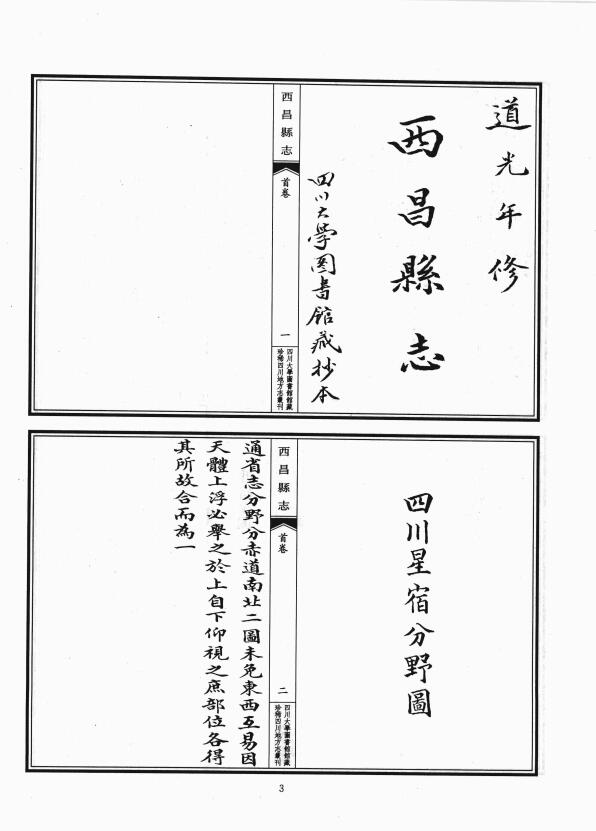 道光年修
西昌縣志
四川大學图書館藏抄本
西昌縣志
首卷
一
四川大學圖書館館藏
珍稀四川地方志叢刊
四川星宿分野圖
西昌縣志
首卷
二
四川大學圖書館館藏
珍稀四川地方志叢刊
通省志分野分赤道南北二圖未免東西互易因
天體上浮必舉之於上自下仰視之庶部位各得
其所故合而為一
3